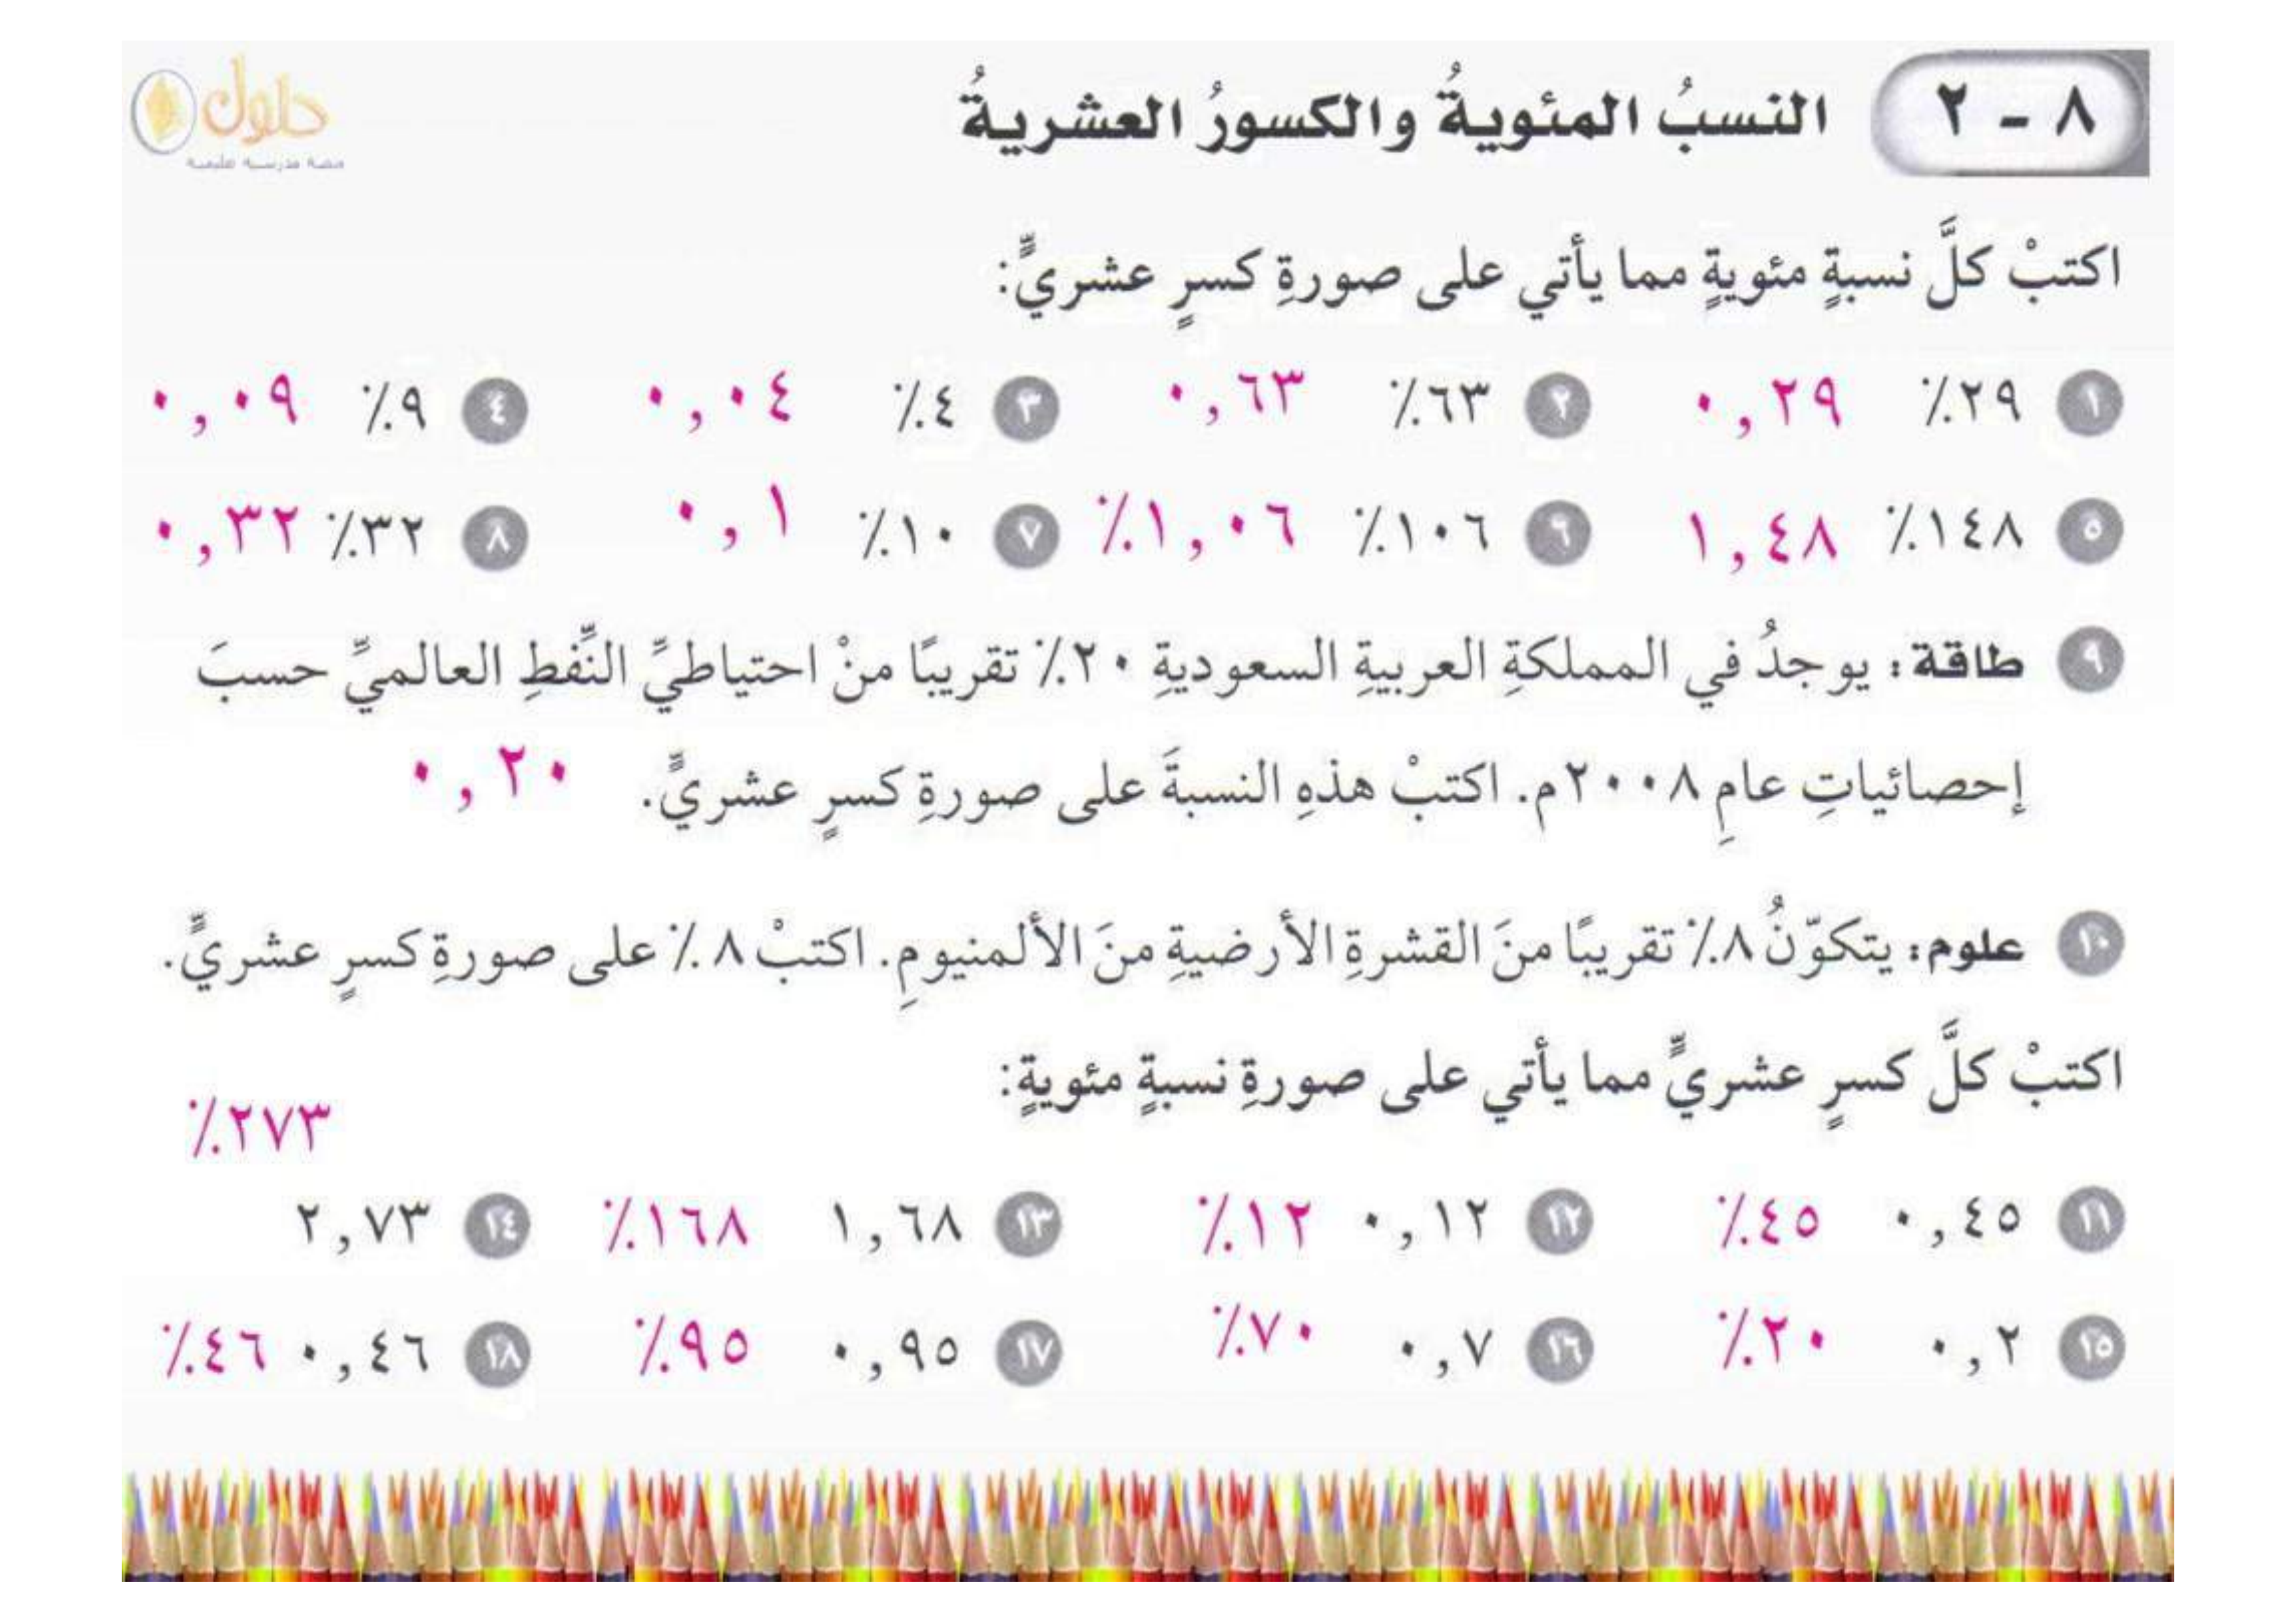 ٨ - ٢ النسبُ المئويةُ والكسورُ العشريةُ
حلول
اكتبْ كلَّ نسبةٍ مئويةٍ مما يأتي على صورةِ كسرٍ عشريٍّ:
١ ٢٩٪ ٠,٢٩ ٢ ٦٣٪ ٠,٦٣ ٣ ٤٪ ٠,٠٤ ٤ ٩٪ ٠,٠٩
٥ ١٤٨٪ ١,٤٨ ٦ ١٠٦٪ ١,٠٦٪ ٧ ١٠٪ ٠,١ ٨ ٣٢٪ ٠,٣٢
٩ طاقة: يوجدُ في المملكةِ العربيةِ السعوديةِ ٢٠٪ تقريبًا منْ احتياطيِّ النِّفطِ العالميِّ حسبَ
إحصائياتِ عامِ ٢٠٠٨م. اكتبْ هذهِ النسبةَ على صورةِ كسرٍ عشريٍّ. ٠,٢٠
١٠ علوم: يتكوّنُ ٨٪ تقريبًا منَ القشرةِ الأرضيةِ منَ الألمنيومِ. اكتبْ ٨٪ على صورةِ كسرٍ عشريٍّ.
اكتبْ كلَّ كسرٍ عشريٍّ مما يأتي على صورةِ نسبةٍ مئويةٍ:
٢٧٣٪
١١ ٠,٤٥ ٤٥٪ ١٢ ٠,١٢ ١٢٪ ١٣ ١,٦٨ ١٦٨٪ ١٤ ٢,٧٣
١٥ ٠,٢ ٢٠٪ ١٦ ٠,٧ ٧٠٪ ١٧ ٠,٩٥ ٩٥٪ ١٨ ٠,٤٦ ٤٦٪